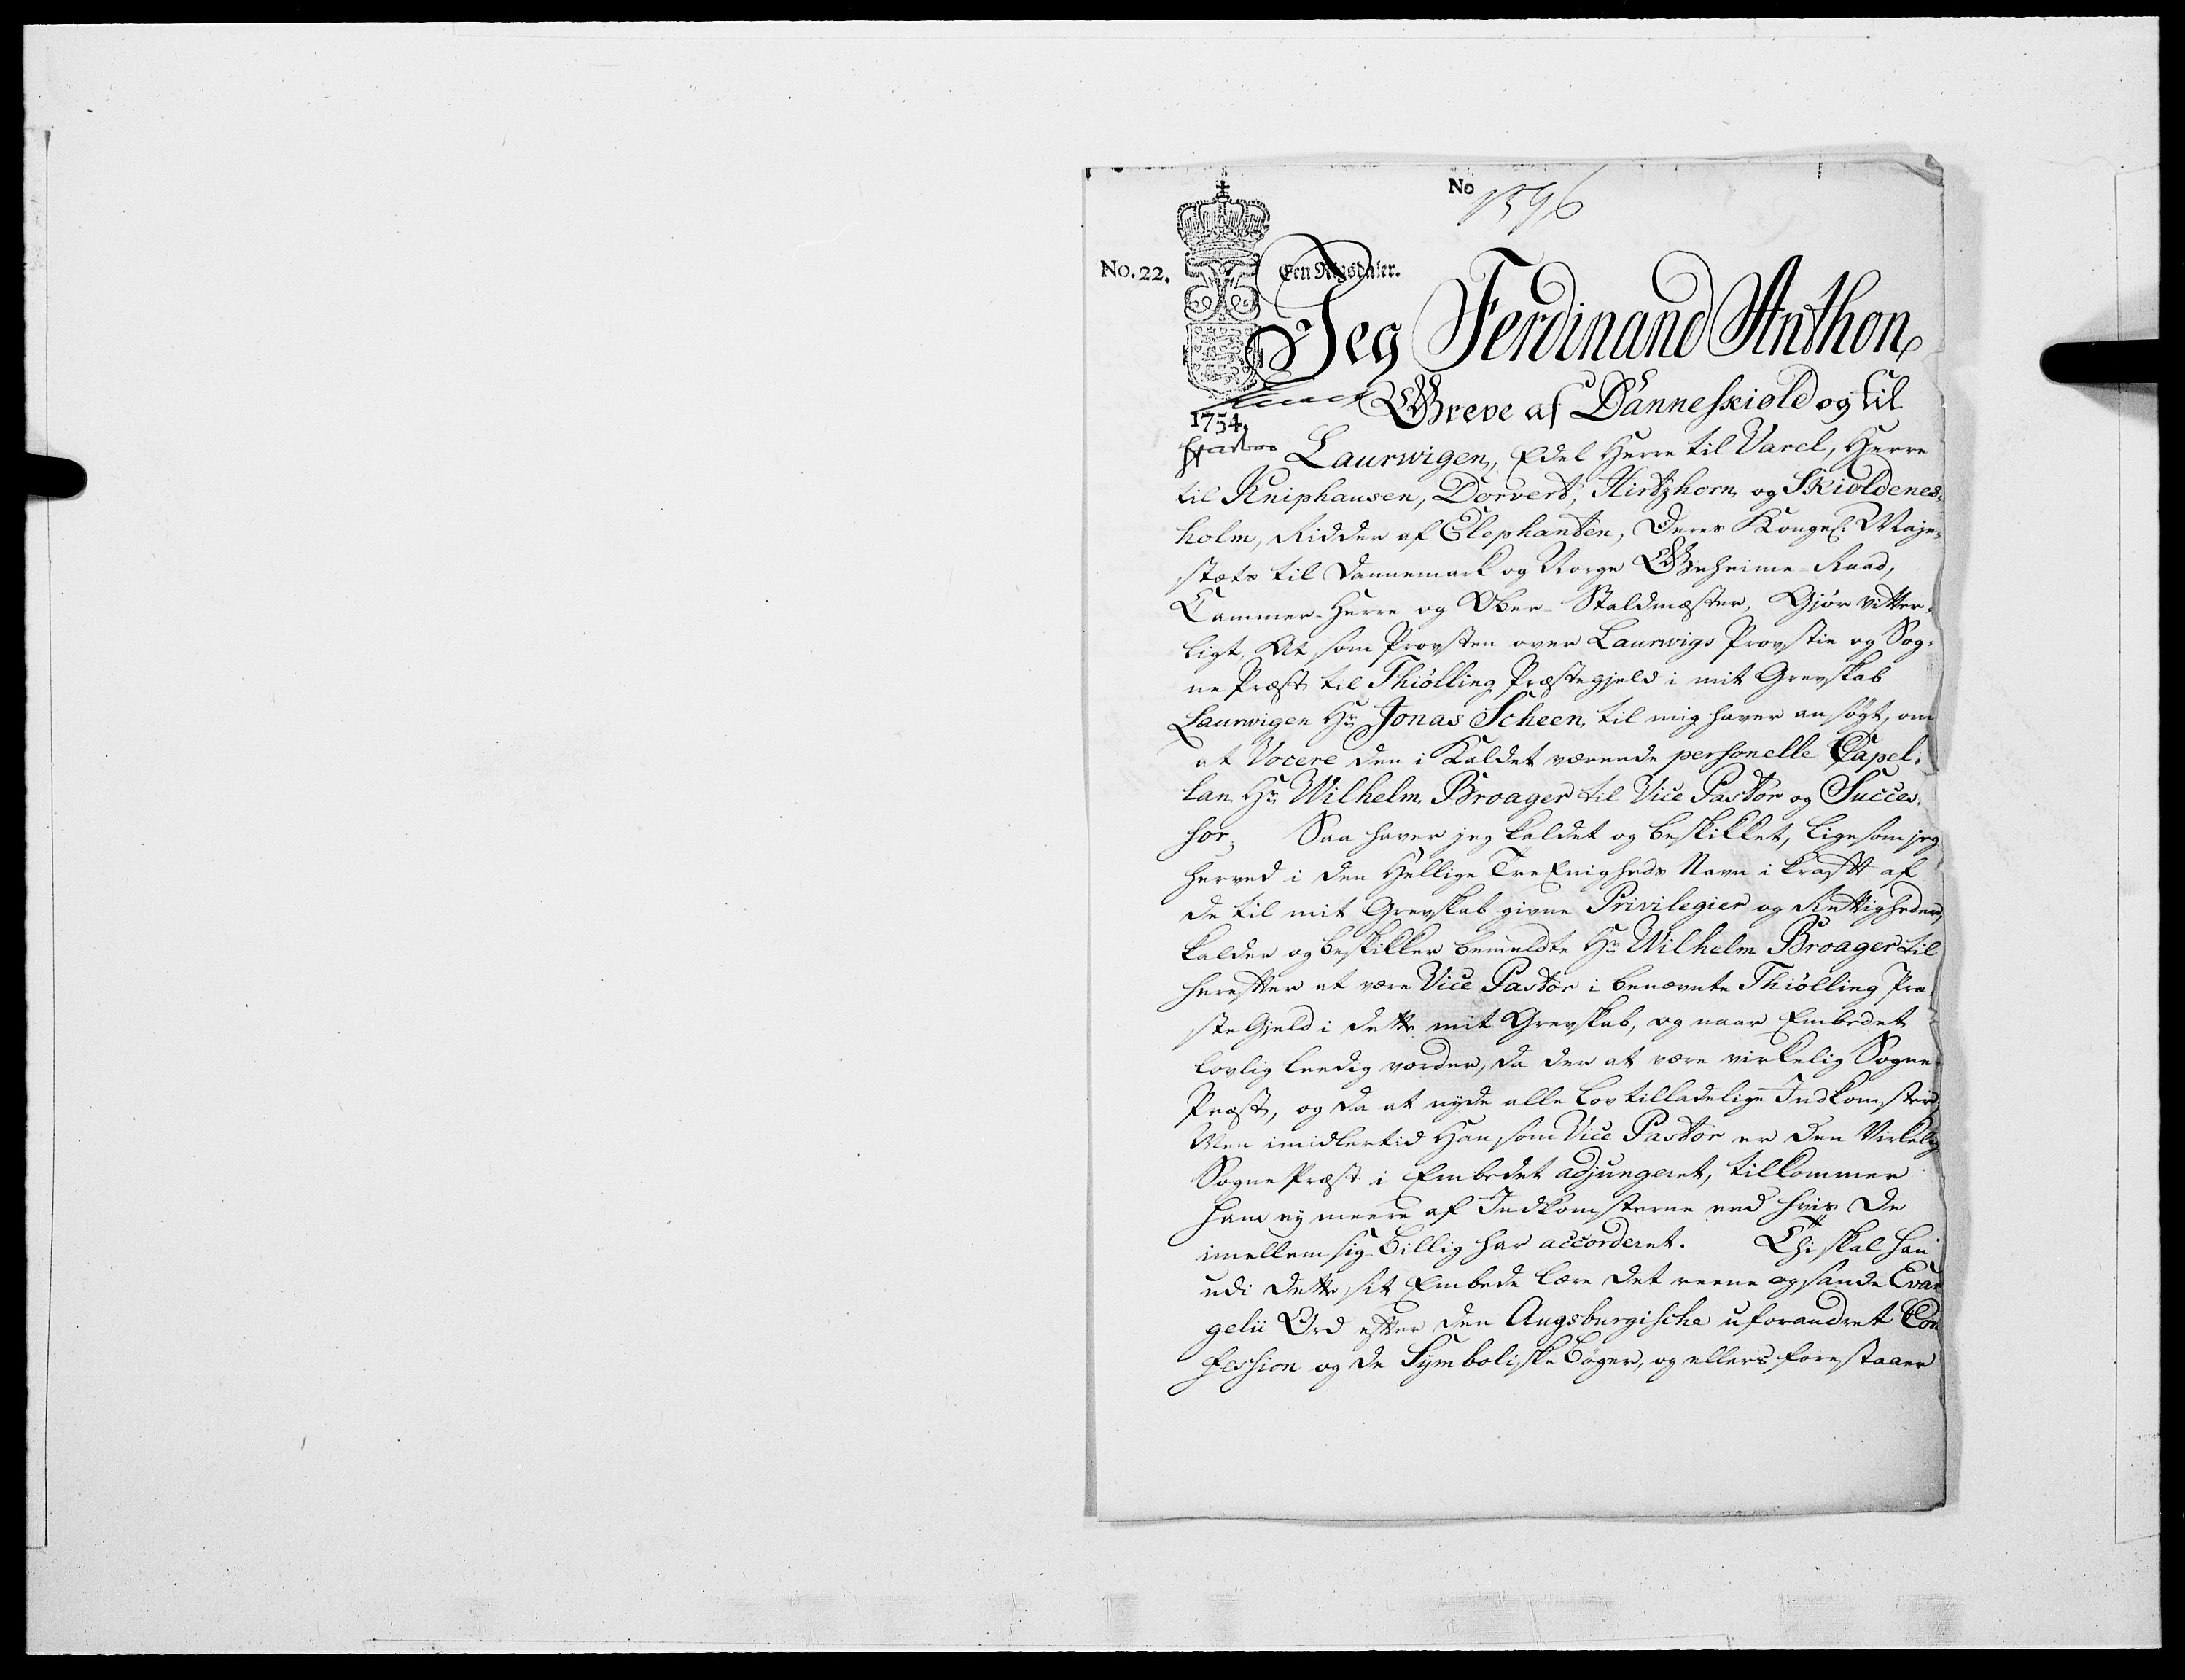 No 1596
No. 22.
Een Rigsdaler.
Jeg Ferdinand Anthon
Greve af Danneskiold og til
1754.
Laurwigen, Edel Herre til Varel, Herre
til Kniphausen, Dorvert, Hirtzhorn og Skioldenes-
holm, Ridder af Elephanten, Deres Kongel. Maje-
stæts til Dannemark og Norge Geheime-Raad,
Cammer-Herre og Ober-Staldmester, Gjør vitter-
ligt, At som Provsten over Laurwigs Provstie og Sog-
ne Præst til Thiølling Præstegjeld i mit Grevskab
Laurwigen Hr. Jonas Scheen, til mig haver ansøgt, om
at Vocere den i Kaldet værende personelle Capel-
lan Hr. Wilhelm Broager til Vice Pastor og Succes-
sor; Saa haver jeg kaldet og beskikket, ligesom jeg
herved i den Hellige Tre Enigheds Navn i krafft af
de til mit Grevskab givne Privilegier og Rettigheder,
kalder og beskikker bemeldte Hr. Wilhelm Broager til
herefter at være Vice Pastor i benævnte Thiølling Præ-
ste Gjeld i dette mit Grevskab, og naar Embedet
lovlig leedig vorder, da der at være virkelig Sogne-
Præst, og da at nyde alle Lovtilladelige Indkomster,
Men imidlertid Han som Vice Pastor er den Virkelig
Sogne Præst i Embedet adjungeret, tilkommer
ham ey meere af Indkomsterne end hvis De
imellem sig billig har accorderet. Thi skal han
udi dette sit Embede lære det reene og sande Evan
gelii Ord efter den Augsburgische uforandret Con
fession og de Symboliske Bøger, og ellers forestaaer